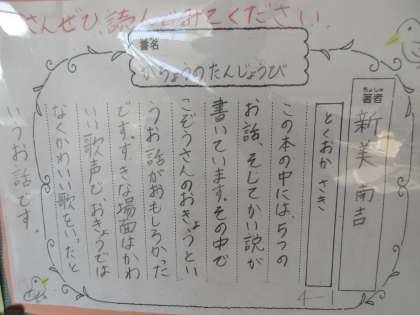 さんぜひ、読んでみてください.
書名
がちょうのたんじょうび
ちょしゃ
著者
新美 南吉
とくおか さき
この本の中には、5つの
お話、そしてかい説が
書いています。その中で
こぞうさんのおきょうとい
うお話がおもしろかった
です。すきな場面はかわ
いい歌声で、おきょうでは
なくかわいい歌をいったと
いうお話です。
4-1